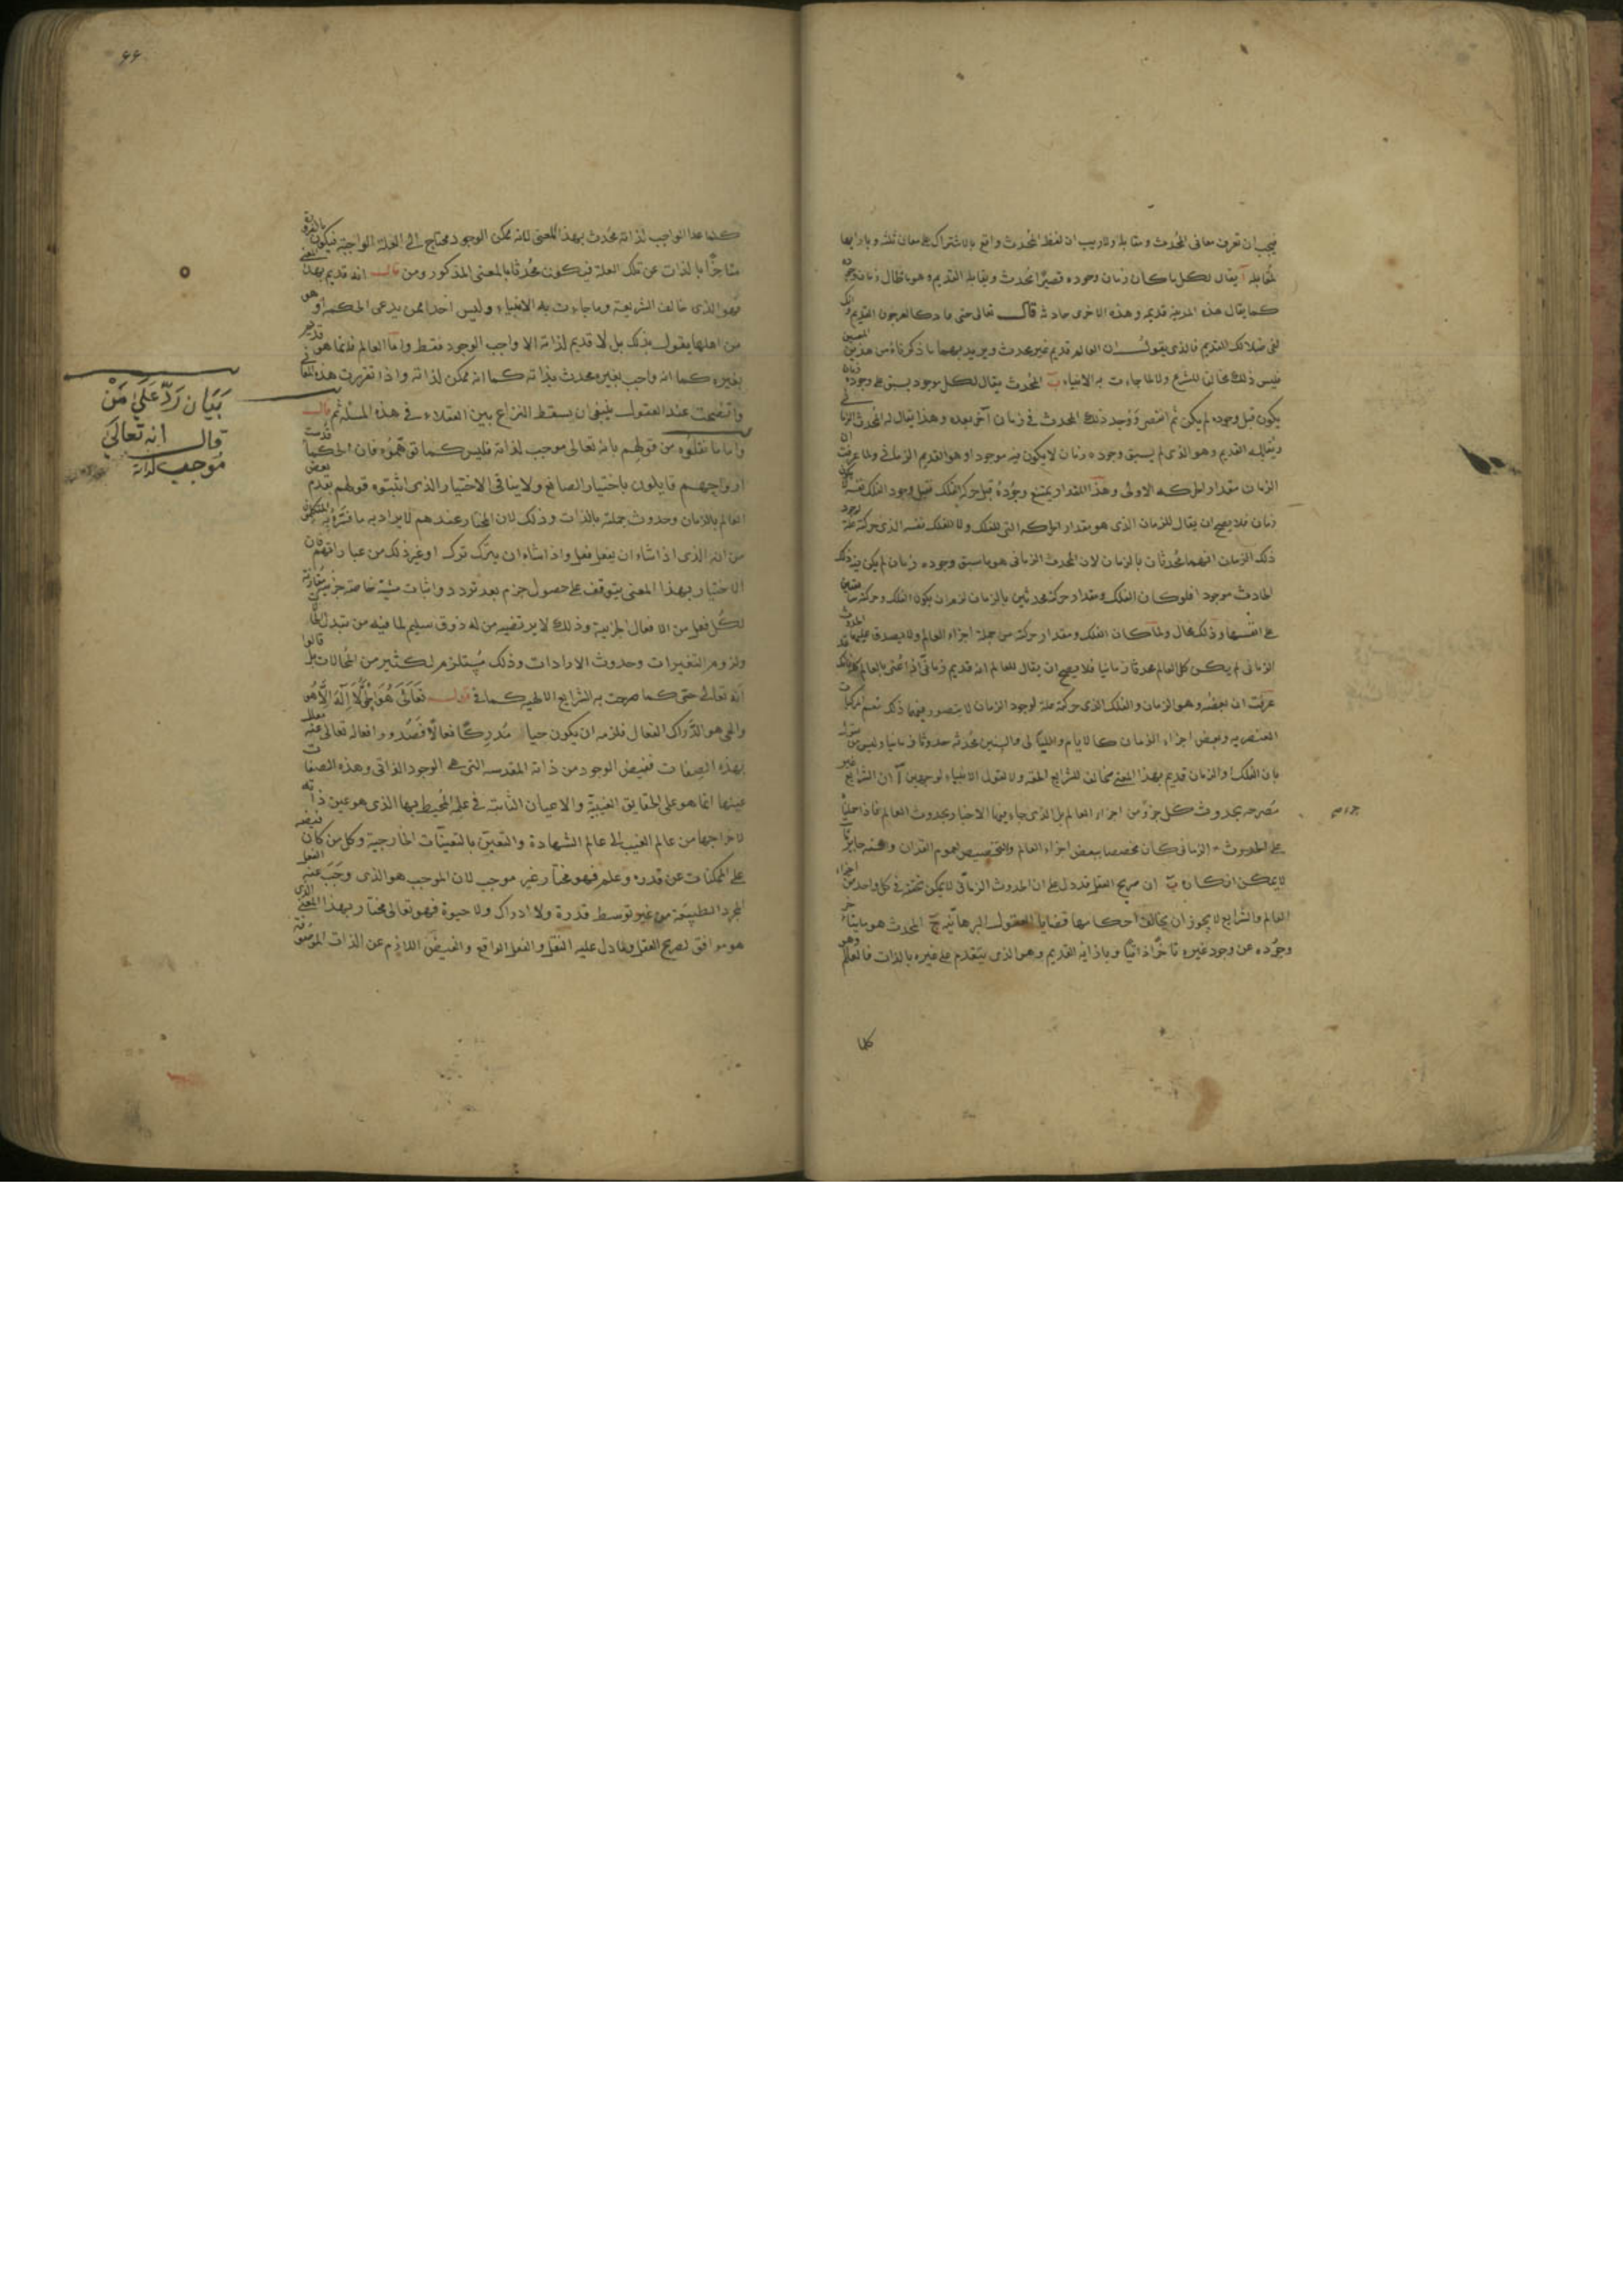 فيجب ان تعرف معانى المُحدث ومقابله ولا ريب ان لفظ المُحدث واقع بالاشتراك على معان ثلثه وبازايها
لمُقابله آ يقال لكل ما كان زمان وجوده قصيرًا محدث ويقابله القديم وهو ما طال زمان وجوده
كما يقال هذه المدينة قديمه وهذه الاخرى حادثه قال تعالى حتى عاد كالعرجون القديم وانك
لفى ضلالك القديم فالذى يقول ان العالم قديم غير محدث ويريد بهما ما ذكرناه من هذين المعنيين
فليس ذلك مخالف للشرع ولا لما جاءت به الانبياء ب المُحدث يقال لكل موجود يسبق على وجوده زمان
يكون قبل وجوده لم يكن ثم انقضى ووُجد ذلك المحدث فى زمان آخر بعده وهذا يقال له المُحدث الزمانى
ويُقابله القديم وهو الذى لم يسبق وجوده زمان لا يكون فيه موجود او هو القديم الزمانى ولما عرفت ان
الزمان مقدار الحركه الاولى وهذا المقدار يمتنع وجُودُه قبل حركة الفلك فقبل وجود الفلك نفسه لا يكون
زمان فلا يصح ان يقال للزمان الذى هو مقدار الحركه التى للفلك ولا الفلك نفسه الذى حركته علة لوجود
ذلك الزمان انهما مُحدثان بالزمان لان المُحدث الزمانى هو ما سبق وجوده زمان لم يكن فيه ذلك
الحادث موجودا فلو كان الفلك ومقدار حركته محدثين بالزمان لزم ان يكون الفلك وحركته سابقين
على انفسها وذلك محال ولمّا كان الفلك ومقدار حركته من جملة اجزاء العالم ولا يصدق عليهما الحدوث
الزمانى لم يكن كل العالم محدثا زمانيا فلا يصح ان يقال للعالم انه قديم زمانىّ اذا عُنى بالعالم كله
عرفت ان بعضه وهو الزمان والفلك الذى حركته علة لوجود الزمان لا يتصور فيهما ذلك نعم المركبات
العنصريه وبعض اجزاء الزمان كالايام والليالى والسنين محُدثه حدوثا زمانيا وليس من يقول
بان الفلك والزمان قديم بهذا المعنى مخالف للشرايع الحقه ولا لقول الانبياء لوجهين آ ان الشرايع غير
مصرحه بحدوث كل جزؤ من اجزاء العالم بل الذى جاء فيها الاخبار بحدوث العالم فاذا حملنا
على الحدوث الزمانى كان مخصصا ببعض اجزاء العالم والتخصيص لعموم القران والسنه جايز
لا يمكن انكاره ب ان صريح العقل قد دل على ان الحدوث الزمانّى لا يمكن تحققه فى كل واحد من اجزاء
العالم والشرايع لا يجوز ان يخالف احكامها قضايا العقول البرهانّيه ج المحدث هو ما يتأخر
وجُوده عن وجود غيره تأخُّرًا ذاتيًا وبازائه القديم وهو الذى يتقدم على غيره بالذات فالعالم وهو
كلما
٦٦
كلما عدا الواجب لذاته مُحدث بهذا المعنى لانه ممكن الوجود محتاج الى العلة الواجبة فيكون بالضرورة
متاخرًا بالذات عن تلك العلة فيكون مُحدثا بالمعنى المذكور ومن قال انه قديم بهذا المعنى
فهو الذى خالف الشريعة وما جاءت به الانبياء وليس احدا ممن يدعى الحكمه او هو
من اهلها يقول بذلك بل لا قديم لذاته الا واجب الوجود فقط وامّا العالم فانما هو قديم
بغيره كما انه واجب بغيره محدث بذاته كما انه ممكن لذاته واذا تقررت هذه المعانى
واتضحت عند العقول ينبغى ان يسقط النزاع بين العقلاء فى هذه المسئله ثم قال
واما ما نقلوه من قولهم بانه تعالى موجب لذاته فليس كما توهّموُه فان الحكماء قدست
ارواحهم قايلون باختيار الصانع ولا ينافى الاختيار الذى اثبتوه قولهم بقدم بعض
العالم بالزمان وحدوث جملته بالذات وذلك لان المختار عندهم لا يراد به ما فسّره به المتكلمون
من انه الذى اذا شاء ان يفعل فعل واذا شاء ان يترك ترك او غير ذلك من عباراتهم فان
الاختيار بهذا المعنى يتوقف على حصول جزم بعد تردد واثبات مشيّة خاصة جزئية مُقارنة
لكُل فعل من الافعال الجزئية وذلك لا يرتضيه من له ذوق سليم لما فيه من تبدل الحالات
ولزوم التغيرات وحدوث الارادات وذلك مُستلزم لكثير من المُحالات بل قالوا
انه تعالى حى كما صرحت به الشرايع الالهيه كما فى قوله تعَالىَ هُوَ الحَىُّ لاَ اِلَهَ اِلَّا هُو
والحى هو الدَّراك الفعال فلزمه ان يكون حيا مُدرِكًا فعالًا فصُدور افعاله تعالى عنه معلل
بهذه الصِفات ففيض الوجود من ذاته المقدسه التى هى الوجود الذاتى وهذه الصفات
عينها انما هو على الحقايق الغيبيّة والاعيان الثابته فى علمه المُحيط بها الذى هو عين ذاته
لاخراجها من عالم الغيب الى عالم الشهادة والتعيّن بالتعينّات الخارجية وكل من كان فيضه
على الممكنات عن قدره وعلم فهو مختار غير موجب لان الموجب هو الذى وجَبَ عنه الفعل
لمجرد الطبيعة من غير توسط قدرة ولا ادراك ولا حيوة فهو تعالى مختار بهذا المعنى الذى
هو موافق لصريح العقل ولما دل عليه النقل والفعل الواقع والفيض اللازم عن الذات الموصوفة
بيَان رَدّ عَلَى مَنْ
قال انه تعالى
مُوجب لذاته